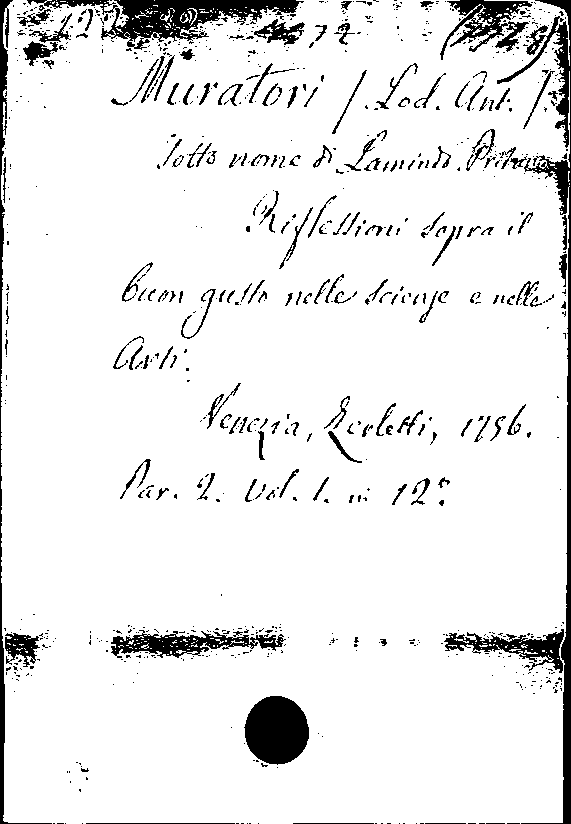 Muratori /. Lod. Ant. /.
sotto nome di Lamindo
Riflessioni sopra il
buon gusto nelle scienze e nelle
Arti.
Venezia, Zerletti, 1756.
Par. 2. Vol. 1. in 12°.